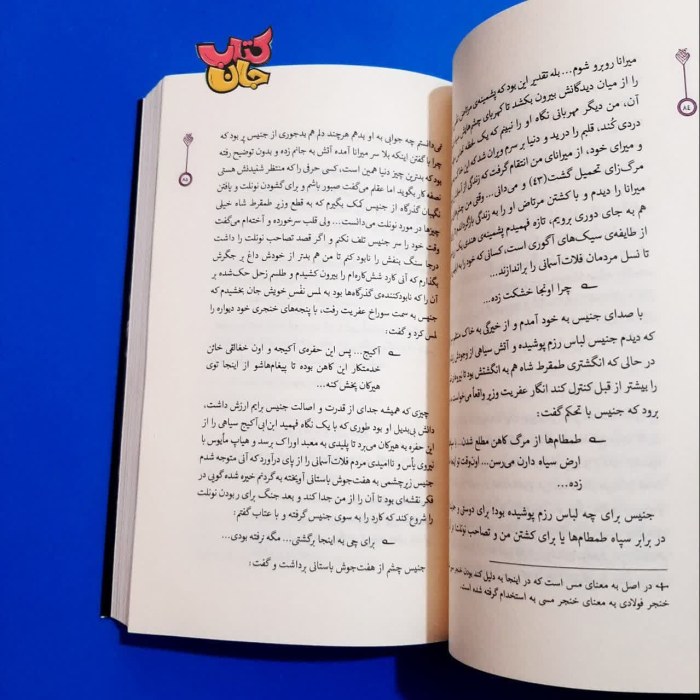 کتاب
جان
۸۴
میرانا روبرو شوم... بله تقدیر این بود که پشمینه‌ی
را از میان دیدگانش بیرون بکشد تا کهربای چشم‌هایش
آن، من دیگر مهربانی نگاه او را نبینم که یک لحظه
دردی کُند، قلبم را درید و دنیا بر سرم ویران شد که این
و میرای خود، از میرانای من انتقام گرفت که زندگی از
مرگ‌زای تحمیل گشت(۴۳) و می‌دانی... وقتی من چشم
میرانا را دیدم و با کشتن مرتاض او را به زندگی بازگرداندم
هم به جای دوری برویم، تازه فهمیدم پشمینه‌ی هندی یکی
از طایفه‌ی سیک‌های آگوری است، کسانی که خود را به
تا نسل مردمان فلات آسمانی را براندازند...
چرا اونجا خشکت زده...
با صدای جنیس به خود آمدم و از خیرگی به خاک
که دیدم جنیس لباس رزم پوشیده و آتش سیاهی از وجودش
در حالی که انگشتری طمقرط شاه هم به انگشتش بود تا
را بیشتر از قبل کنترل کند انگار عفریت وزیر واقعاً می‌خواست
برود که جنیس با تحکم گفت:
طمطام‌ها از مرگ کاهن مطلع شدن... با
ارض سیاه دارن می‌رسن... اون‌وقت تو اینجا
زده...
جنیس برای چه لباس رزم پوشیده بود! برای دوستی و
در برابر سپاه طمطام‌ها یا برای کشتن من و تصاحب نونلت
در اصل به معنای مس است که در اینجا به دلیل کند بودن خنجر
خنجر فولادی به معنای خنجر مسی به استخدام گرفته شده است.
۸۵
نمی‌دانستم چه جوابی به او بدهم هرچند دلم هم بدجوری از جنیس پر بود که
چرا با گفتن اینکه بلا سر میرانا آمده آتش به جانم زده و بدون توضیح رفته
بود که بدترین چیز دنیا همین است، کسی حرفی را که منتظر شنیدنش هستی
نصفه کار بگوید اما عقلم می‌گفت صبور باشم و برای گشودن نونلت و یافتن
نگهبان گذرگاه از جنیس کمک بگیرم که به قطع وزیر طمقرط شاه خیلی
چیزها در مورد نونلت می‌دانست... ولی قلب سرخورده و آخته‌ام می‌گفت
وقت خود را سر جنیس تلف نکنم و اگر قصد تصاحب نونلت را داشت
درجا سنگ بنفش را نابود کنم تا من هم بدتر از خودش داغ بر جگرش
بگذارم که آنی کارد شش‌کاره‌ام را بیرون کشیدم و طلسم زحل حک‌شده بر
آن را که نابودکننده‌ی گذرگاه‌ها بود به لمس نفْس خویش جان بخشیدم که
جنیس به سمت سوراخ عفریت رفت، با پنجه‌های خنجری خود دیواره را
لمس کرد و گفت:
آکیج... پس این حفره‌ی آکیجه و اون خفائقی خائن
خدمتکار این کاهن بوده تا پیغام‌هاشو از اینجا توی
هیرکان پخش کنه...
چیزی که همیشه جدای از قدرت و اصالت جنیس برایم ارزش داشت،
دانش بی‌بدیل او بود طوری که با یک نگاه فهمید این‌ابی‌آکیج سیاهی را از
این حفره به هیرکان می‌برد تا پلیدی به معبد اوراک برسد و هیاپ مأیوس با
نیروی یأس و ناامیدی مردم فلات آسمانی را از پای درآورد که آنی متوجه شدم
جنیس زیرچشمی به هفت‌جوش باستانی آویخته به گردنم خیره شده گویی در
فکر نقشه‌ای بود تا آن را از من جدا کند و بعد جنگ برای ربودن نونلت
را شروع کند که کارد را به سوی جنیس گرفته و با عتاب گفتم:
برای چی به اینجا برگشتی... مگه نرفته بودی...
جنیس چشم از هفت‌جوش باستانی برداشت و گفت: